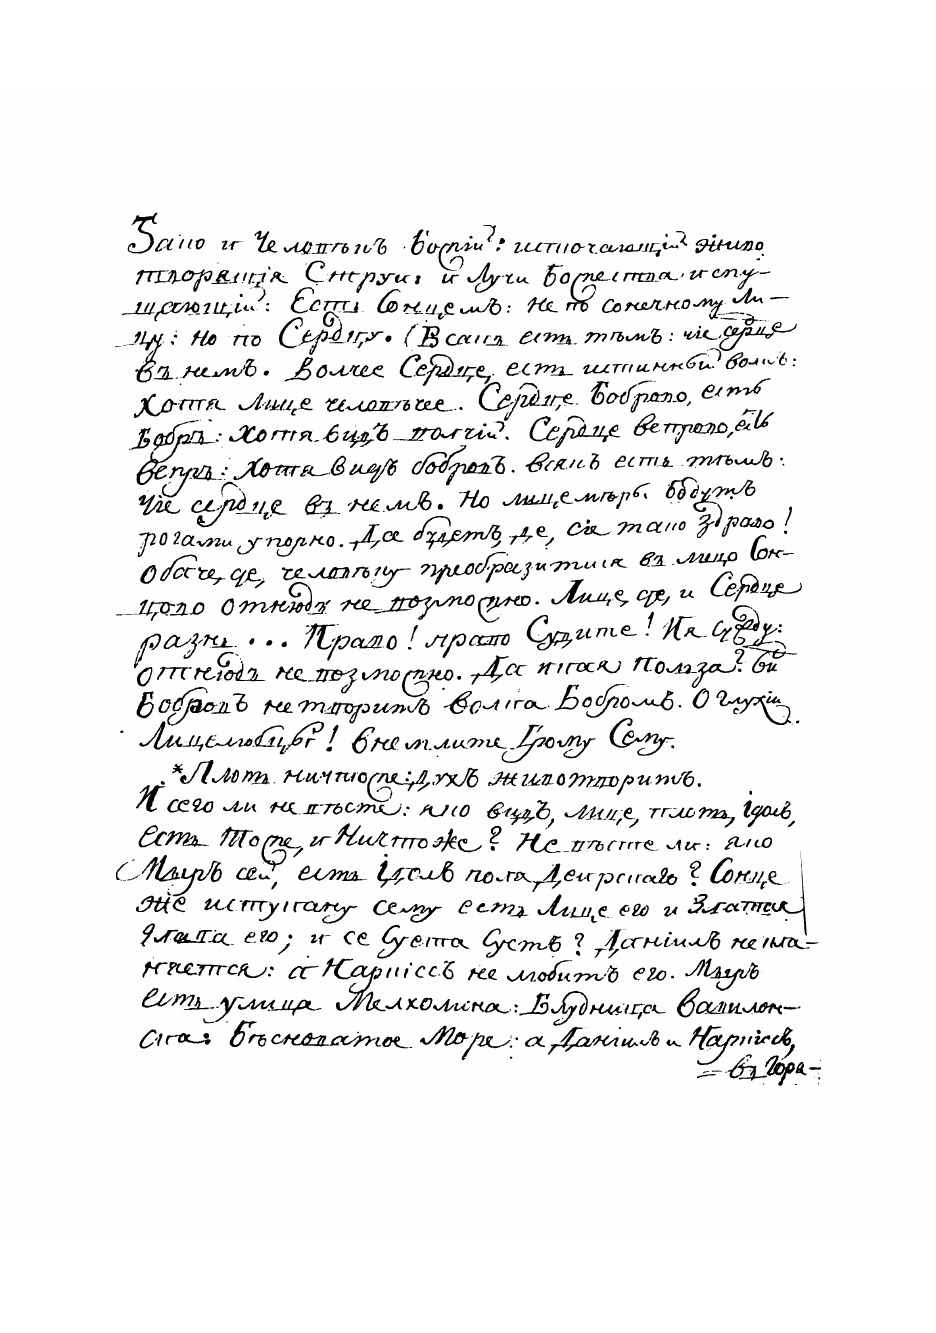 Тако и Человѣкъ Божій: источающій живо
творящія Струи: и Лучи Божества испу-
щающій: Есть Сонцемъ: Не по сонечному Ли-
цу: но по Сердцу. (Всякъ есть тѣмъ: чіе сердце
въ немъ. Волчее Сердце, есть истинный волкъ:
Хотя Лице человѣчее. Сердце Боброво, есть
Бобръ: Хотя видъ волчій. Сердце вепрово, есть
Вепръ: Хотя видъ бобровъ. Всякъ есть тѣмъ:
Чіе сердце въ немъ. Но лицемѣры бодутъ
рогами упорно. Да будетъ, де, сіе тако здраво!
Обаче, де, человѣку преобразитися въ лице Сон-
цово отнюдъ не возможно. Лице, де, и Сердце
разнь ... Право! право Судите! И я сужду:
отнюдъ не возможно. Да и кая польза? Видъ
Бобровъ не творитъ волка Бобромъ. О глухіи
Лицелюбцы! Внемлите Грому Сему.
*Плоть ничтоже: духъ животворитъ.
И сего ли не вѣсте: яко видъ, лице, плоть, ідолъ,
есть Тожде, и Ничтоже? Не вѣсте ли: яко
Мыръ сей, есть ідолъ поля Деирскаго? Сонце
же истукану сему есть Лице его и Златая
Глава его; и се Суета Суетъ? Даніилъ не кла-
няется: а Наркіссъ не любитъ его. Мыръ
есть улица Мелхолина: Блудница Вавилон-
ска: Бѣсноватое Море: а Даніилъ и Наркіссъ,
въ Гора-